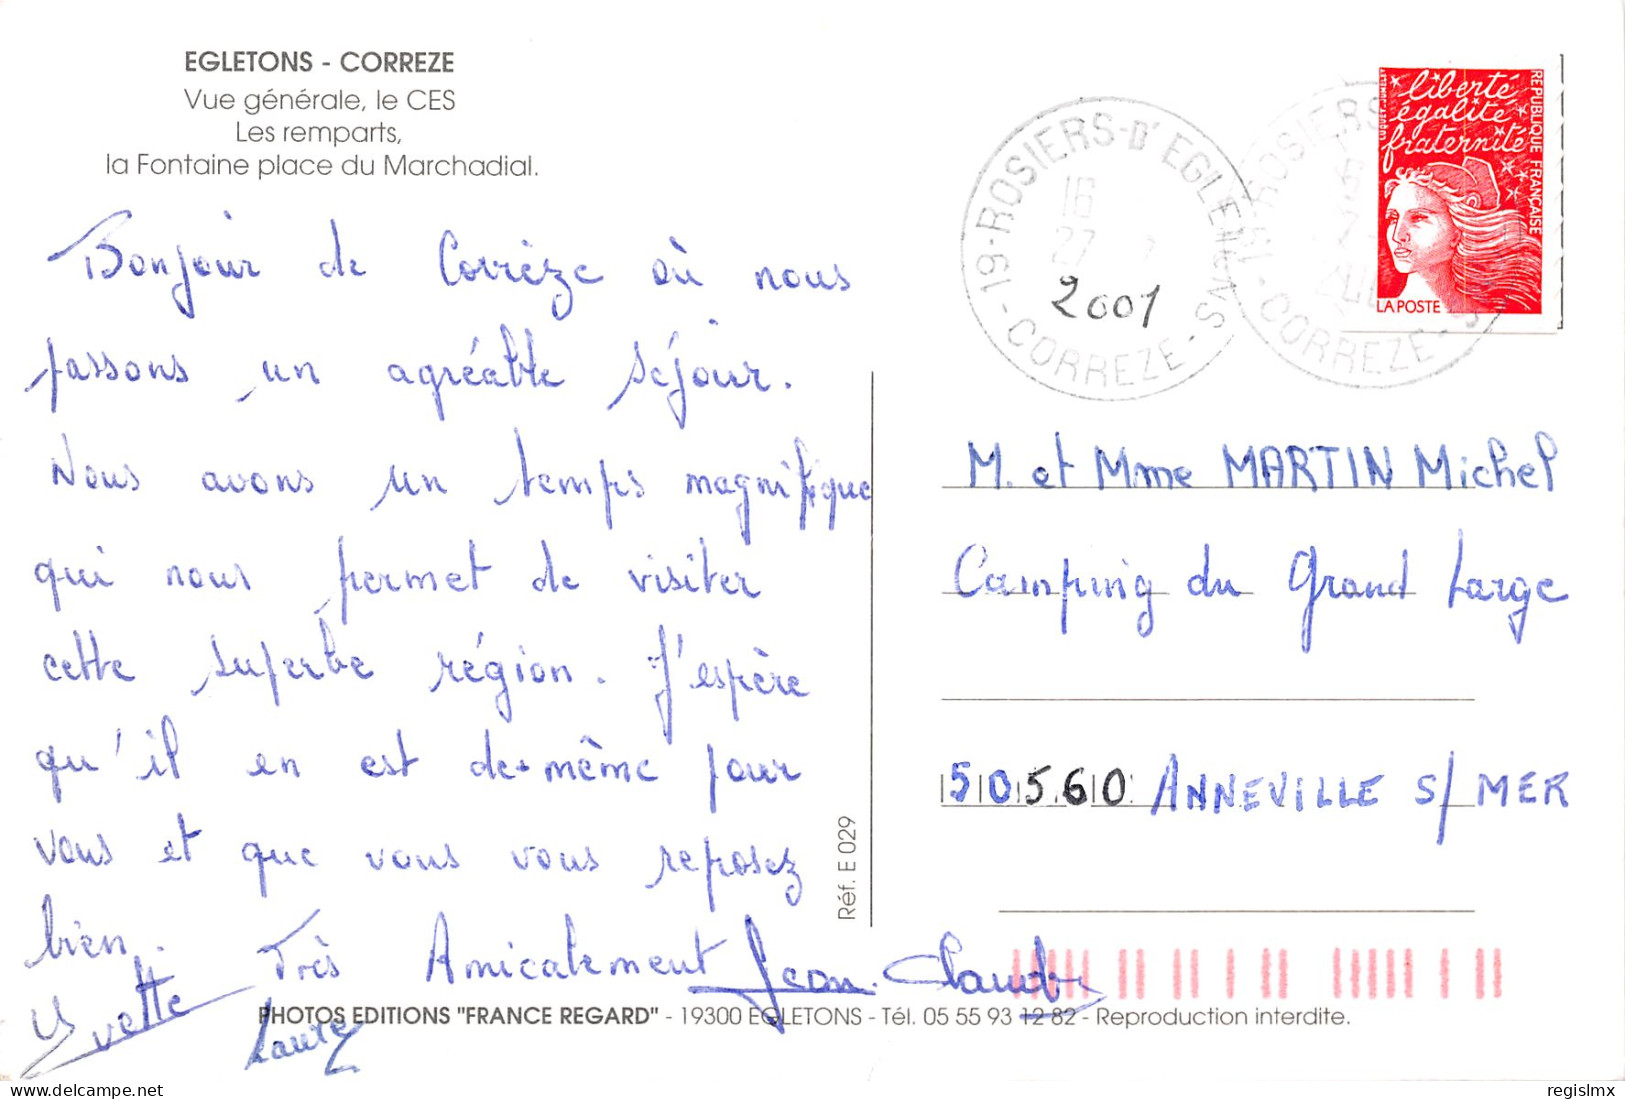 EGLETONS - CORREZE
Vue générale, le CES
Les remparts,
la Fontaine place du Marchadial.
Bonjour de Corrèze où nous
passons un agréable séjour.
Nous avons un temps magnifique
qui nous permet de visiter
cette superbe région. J'espère
qu'il en est de même pour
vous et que vous vous reposez
bien.
Très Amicalement Jean-Claude
Yvette
Laure
PHOTOS EDITIONS "FRANCE REGARD" - 19300 EGLETONS - Tél. 05 55 93 12 82 - Reproduction interdite.
Réf. E 029
19-ROSIERS-D'EGLETONS
16
27 7
2001
CORREZE
ROSIERS
CORREZE
liberté
égalité
fraternité
REPUBLIQUE FRANÇAISE
LA POSTE
M. et Mme MARTIN Michel
Camping du Grand Large
50560 ANNEVILLE S/ MER
regislmx